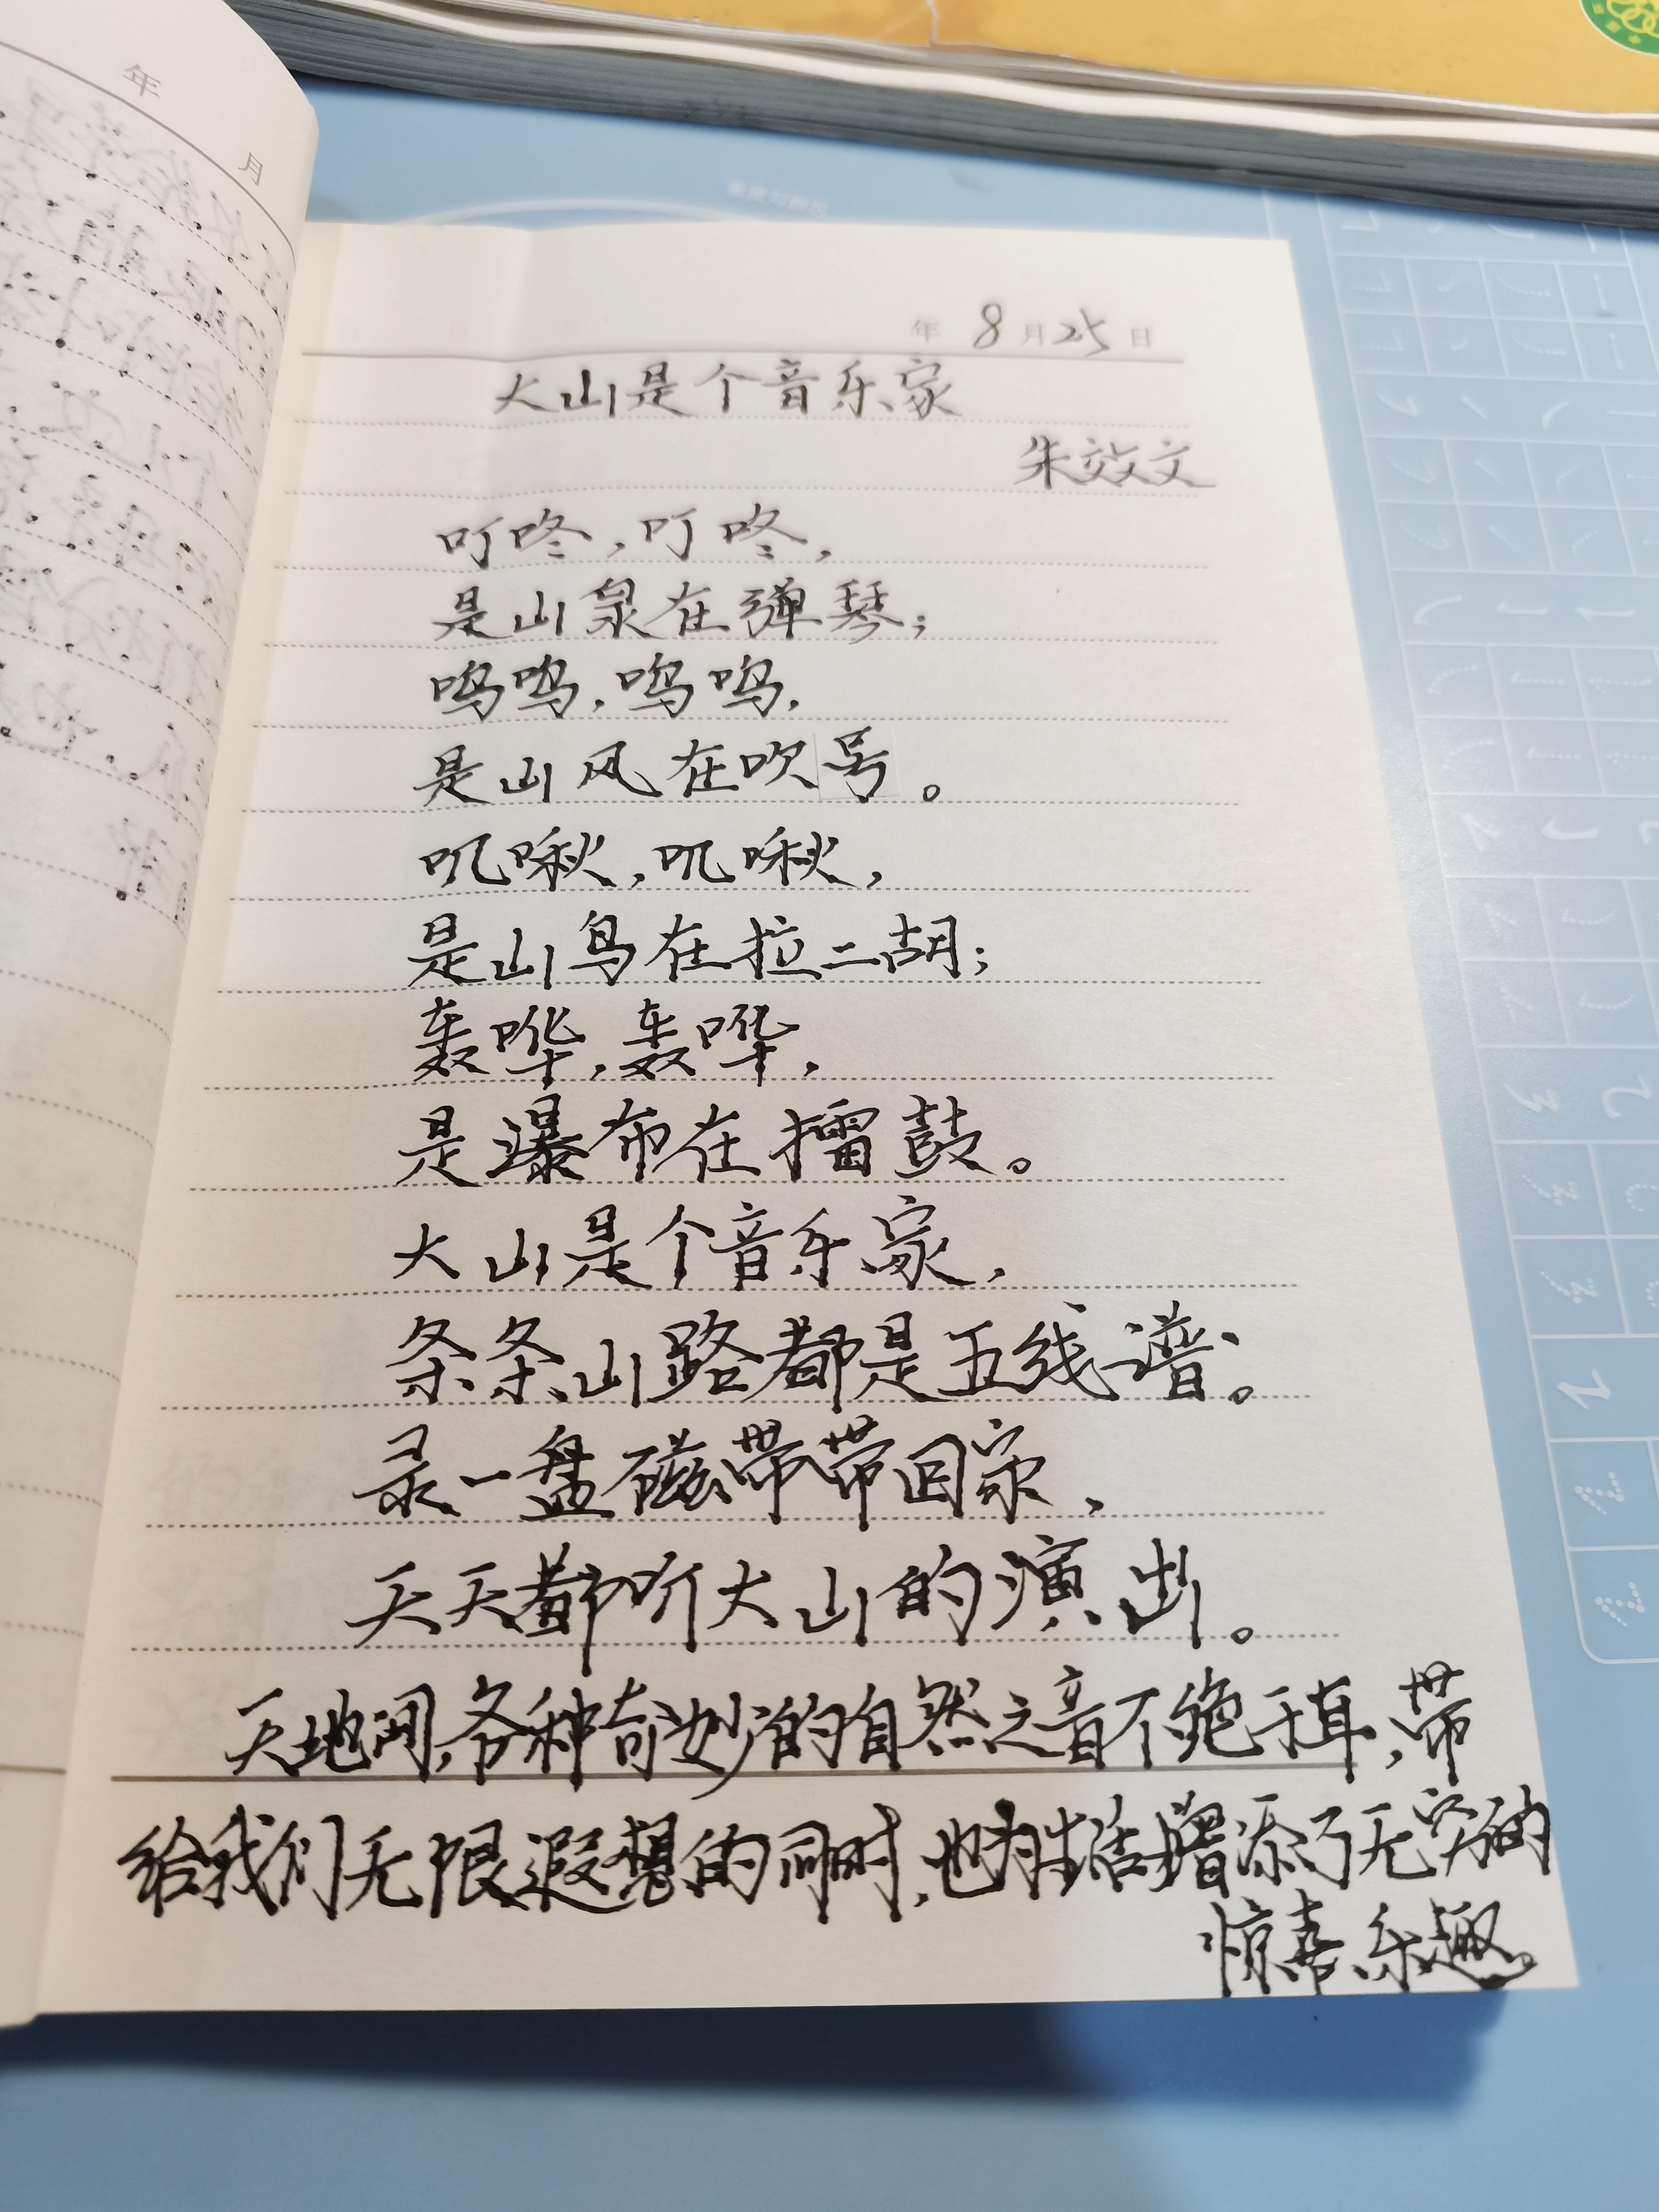 年
月
年 8月25日
大山是个音乐家
朱效文
叮咚,叮咚,
是山泉在弹琴;
呜呜,呜呜,
是山风在吹号。
叽啾,叽啾,
是山鸟在拉二胡;
轰哗,轰哗,
是瀑布在擂鼓。
大山是个音乐家,
条条山路都是五线谱。
录一盘磁带带回家,
天天都听大山的演出。
天地间,各种奇妙的自然之音不绝于耳,带
给我们无限遐想的同时,也为生活增添了无穷的
惊喜乐趣。